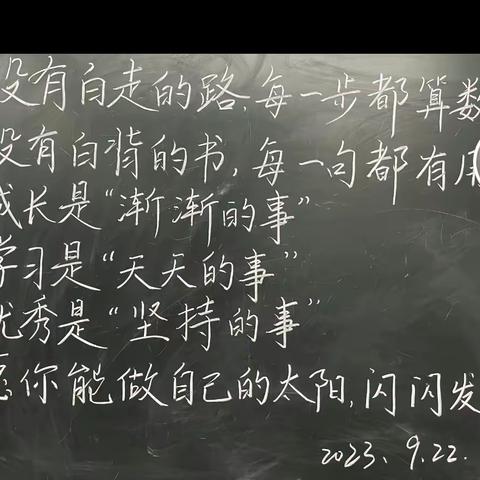 没有白走的路,每一步都算数
没有白背的书,每一句都有用
成长是“渐渐的事”
学习是“天天的事”
优秀是“坚持的事”
愿你能做自己的太阳,闪闪发
2023、9.22.